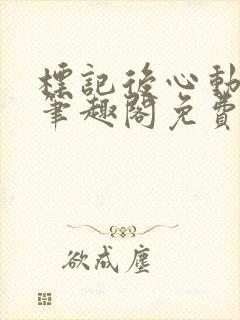 標記後心動
筆趣閣免費
欲成塵